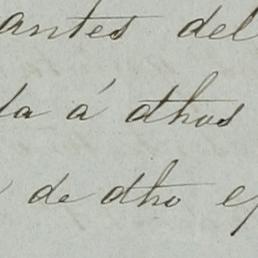 antes del
da á dhos
de dho